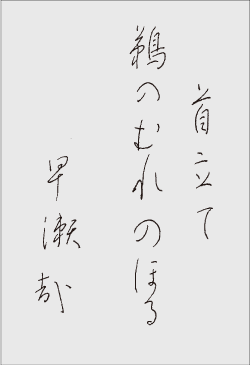 首立て
鵜のむれのほる
早瀬哉